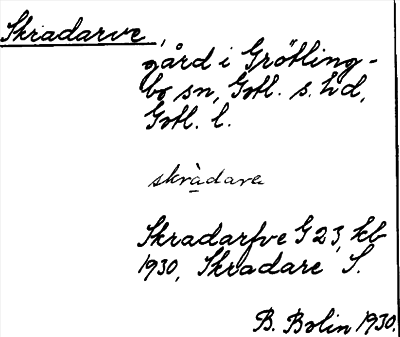 Skradarve,
gård i Grötling-
bo sn, Gotl. s. hd,
Gotl. l.
skràdara
Skradarfve G 23, kb
1930, Skradare S.
B. Bolin 1930.